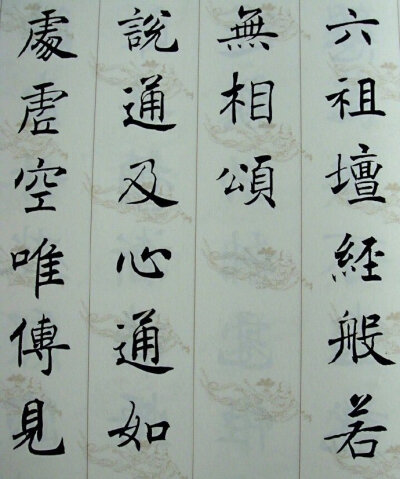 六祖壇經般若
無相頌
說通及心通如
處虛空唯傳見